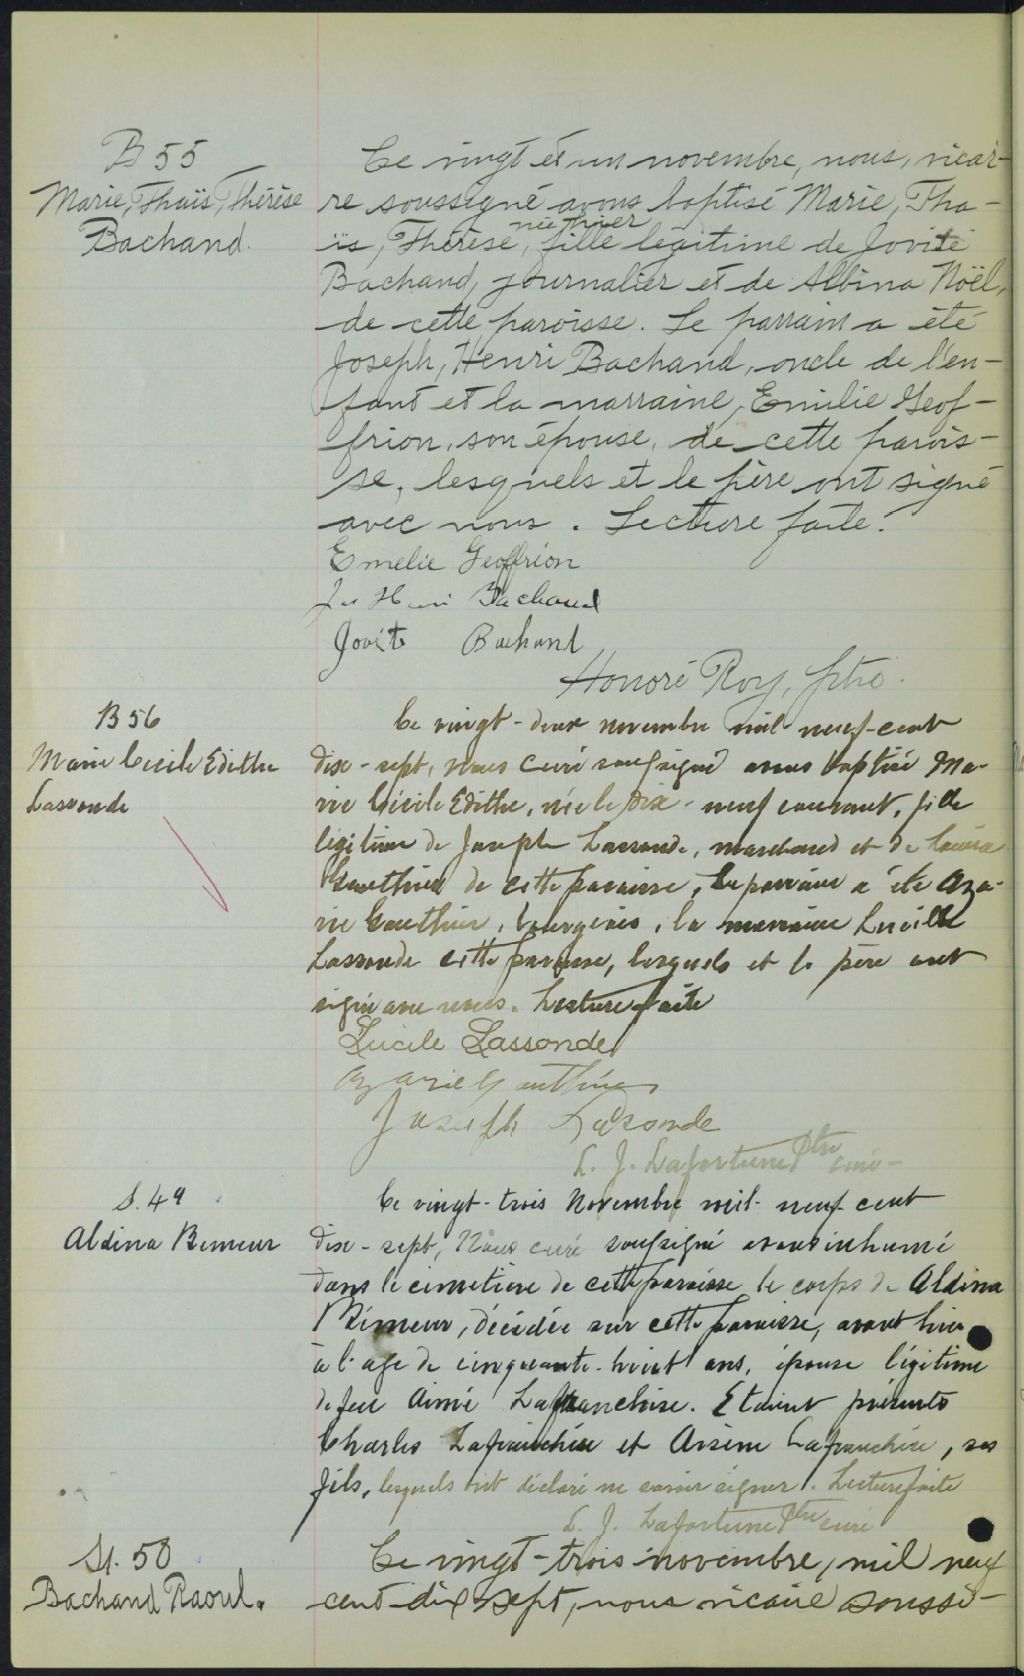 B 55
Marie, Thaïs, Thérèse
Bachand.
Ce vingt et un novembre, nous, vicai-
re soussigné avons baptisé Marie, Tha-
née hier
ïs, Thérèse, fille légitime de Jovite
Bachand, journalier et de Albina Noël,
de cette paroisse. Le parrain a été
Joseph, Henri Bachand, oncle de l'en-
fant et la marraine, Emilie Geof-
frion, son épouse, de cette parois-
se, lesquels et le père ont signé
avec nous. Lecture faite.
Emelie Geoffrion
Jos Henri Bachand
Jovite Bachand
Honoré Roy, ptre.
B 56
Marie Cécile Edithe
Lassonde
Ce vingt-deux novembre mil neuf-cent
dix-sept, nous curé soussigné avons baptisé Ma-
rie Cécile Edithe, née le dix-neuf courant, fille
légitime de Joseph Lassonde, marchand et de Louisa
Gauthier de cette paroisse, Le parrain a été Aza-
rie Gauthier, bourgeois, la marraine Lucille
Lassonde cette paroisse, lesquels et le père ont
signé avec nous. Lecture faite
Lucile Lassonde
Azarie Gauthier
Joseph Lassonde
L. J. Lafortune Ptre curé-
S. 49
Aldina Rimeur
Ce vingt-trois Novembre mil-neuf cent
dix-sept, Nous curé soussigné avons inhumé
dans le cimetière de cette paroisse le corps de Aldina
Rimeur, décédée sur cette paroisse, avant hier
à l'age de cinquante-huit ans, épouse légitime
de feu Aimé Lafranchise. Etaient présents
Charles Lafranchise et Arsène Lafranchise, ses
fils, lesquels ont déclaré ne savoir signer. Lecture faite
L. J. Lafortune Ptre curé
S. 50
Bachand Raoul.
Ce vingt-trois novembre, mil neuf
cent-dix sept, nous vicaire soussi-